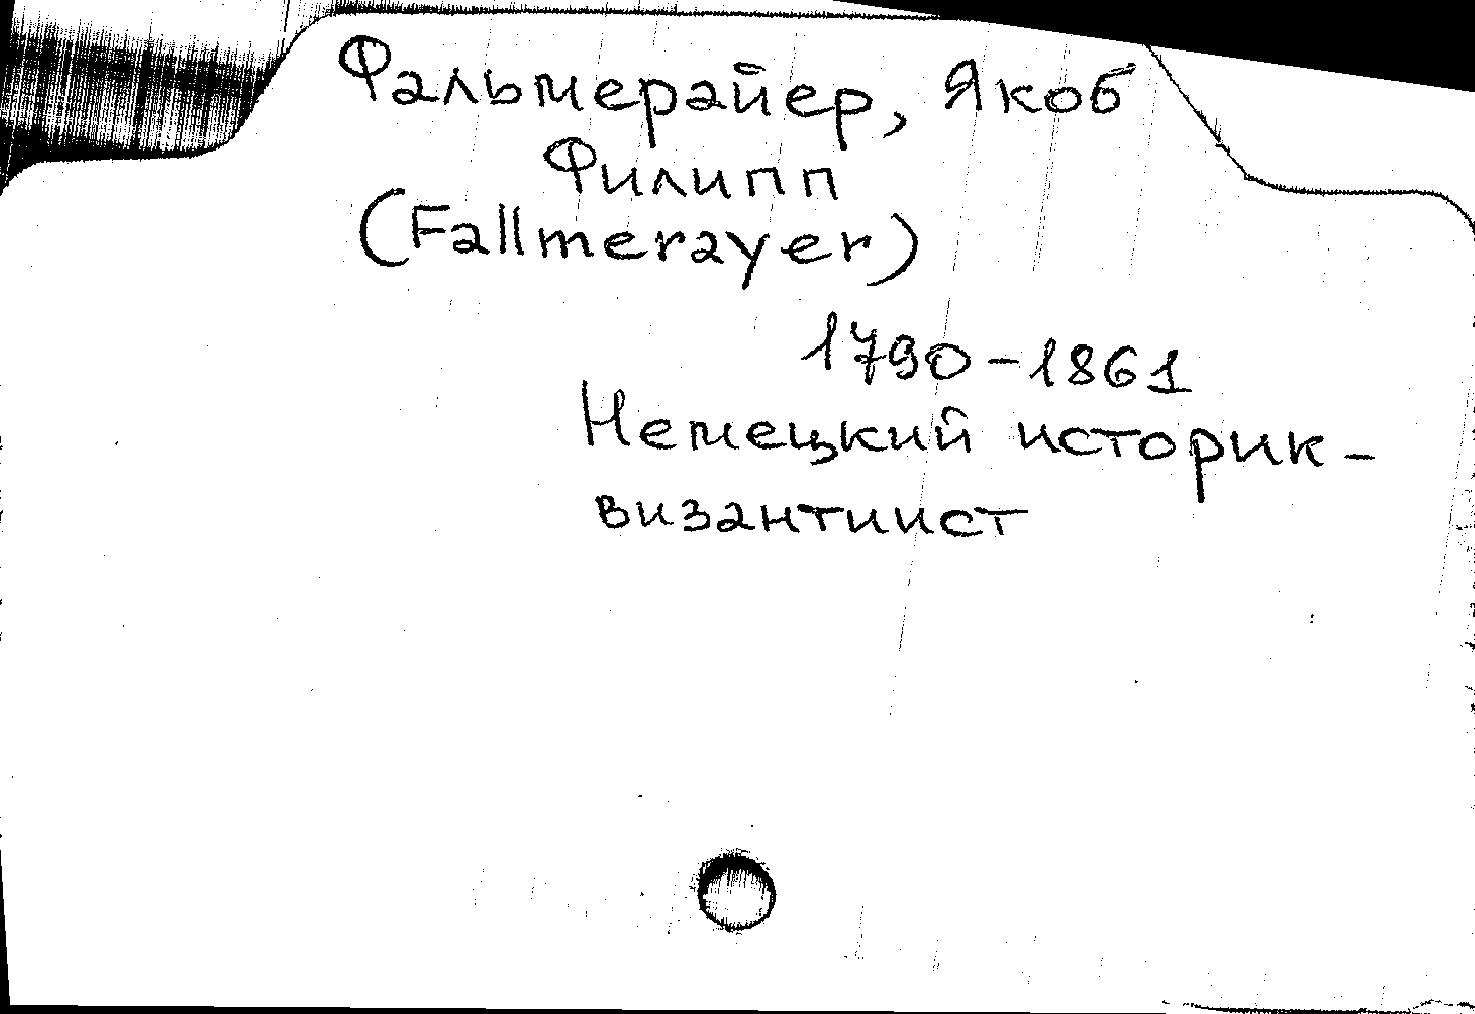 Фальмерайер, Якоб
Филипп
(Fallmerayer)
1790-1861
Немецкий историк-
византиист